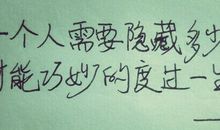 一个人需要隐藏多少
能巧妙的度过一生